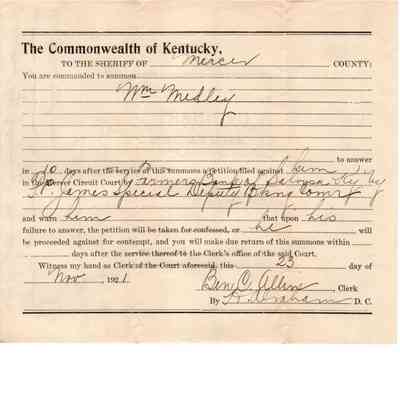 The Commonwealth of Kentucky,
TO THE SHERIFF OF Mercer COUNTY:
You are commanded to summon
Wm Medley
to answer
in 10 days after the service of this summons a petition filed against him
in the Mercer Circuit Court by Farmers Bank of Salvisa Ky by
James Special Deputy Bkng Comr
and warn him that upon his
failure to answer, the petition will be taken for confessed, or he will
be proceeded against for contempt, and you will make due return of this summons within
days after the service thereof to the Clerk's office of the said Court.
Witness my hand as Clerk of the Court aforesaid, this 23 day of
Nov , 1921. Ben C. Allin , Clerk
By Graham D. C.